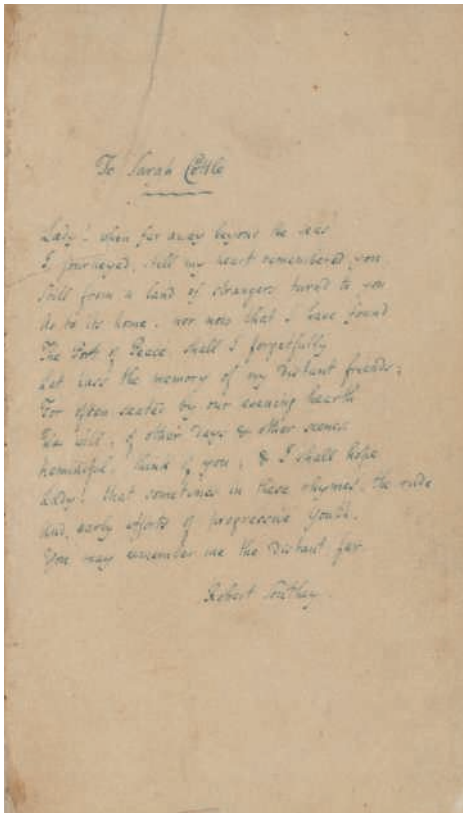 To Sarah Cottle
Lady! when far away beyond the seas
I journeyed, still my heart remembered you
Still from a land of strangers turnd to you
As to its home. nor now that I have found
The Port of Peace shall I forgetfully
Let pass the memory of my distant friends;
For often seated by our evening hearth
We will, of other days & other scenes
remindful, think of you, & I shall hope
Lady! that sometimes in these rhymes, the rude
And early efforts of progressive Youth.
You may remember me the distant far
Robert Southey.